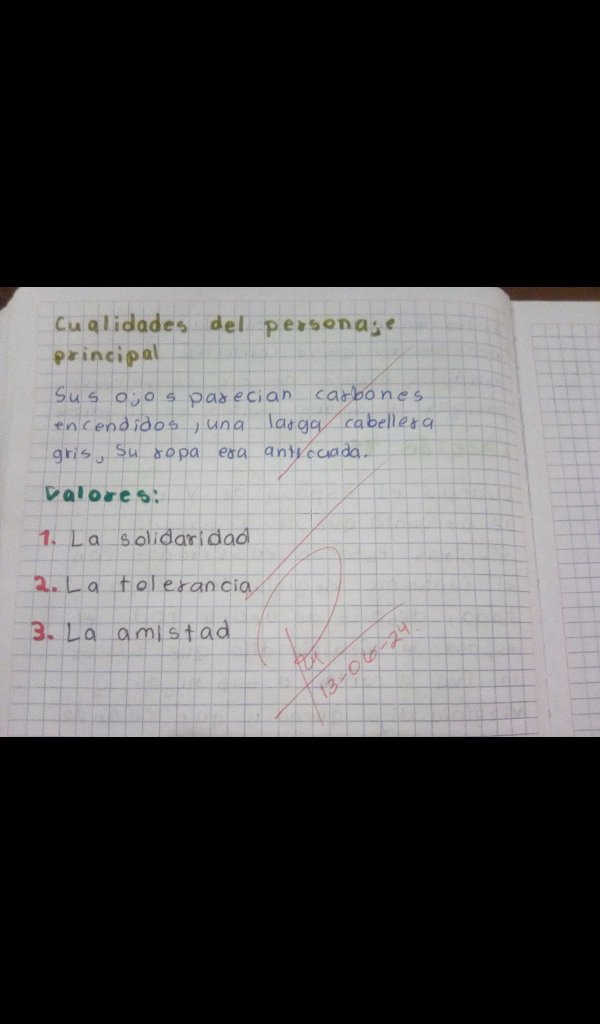 Cualidades del personaje
principal
Sus ojos parecian carbones
encendidos, una larga cabellera
gris, Su ropa era anticuada.
Valores:
1. La solidaridad
2. La tolerancia
3. La amistad
13-06-24.